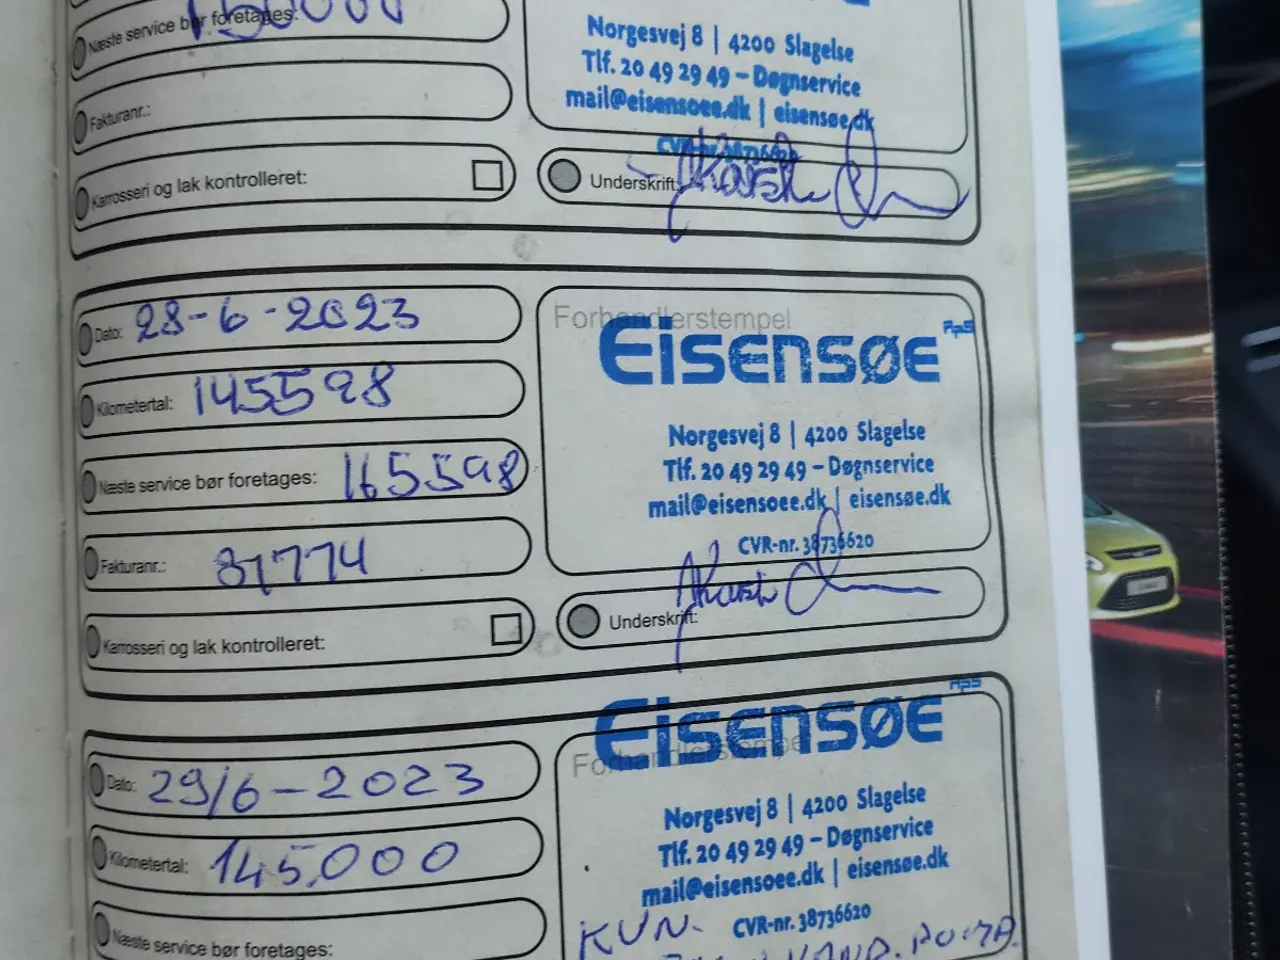 Næste service bør foretages: 150000
Fakturanr.:
Karrosseri og lak kontrolleret:
Norgesvej 8 | 4200 Slagelse
Tlf. 20 49 29 49 – Døgnservice
mail@eisensoee.dk | eisensøe.dk
CVR-nr. 38736620
Underskrift:
Dato: 28-6-2023
Kilometertal: 145598
Næste service bør foretages: 165598
Fakturanr.: 31774
Karrosseri og lak kontrolleret:
Forhandlerstempel
Eisensøe ApS
Norgesvej 8 | 4200 Slagelse
Tlf. 20 49 29 49 – Døgnservice
mail@eisensoee.dk | eisensøe.dk
CVR-nr. 38736620
Underskrift:
Dato: 29/6-2023
Kilometertal: 145.000
Næste service bør foretages:
Forhandlerstempel
Eisensøe ApS
Norgesvej 8 | 4200 Slagelse
Tlf. 20 49 29 49 – Døgnservice
mail@eisensoee.dk | eisensøe.dk
CVR-nr. 38736620
KUN.